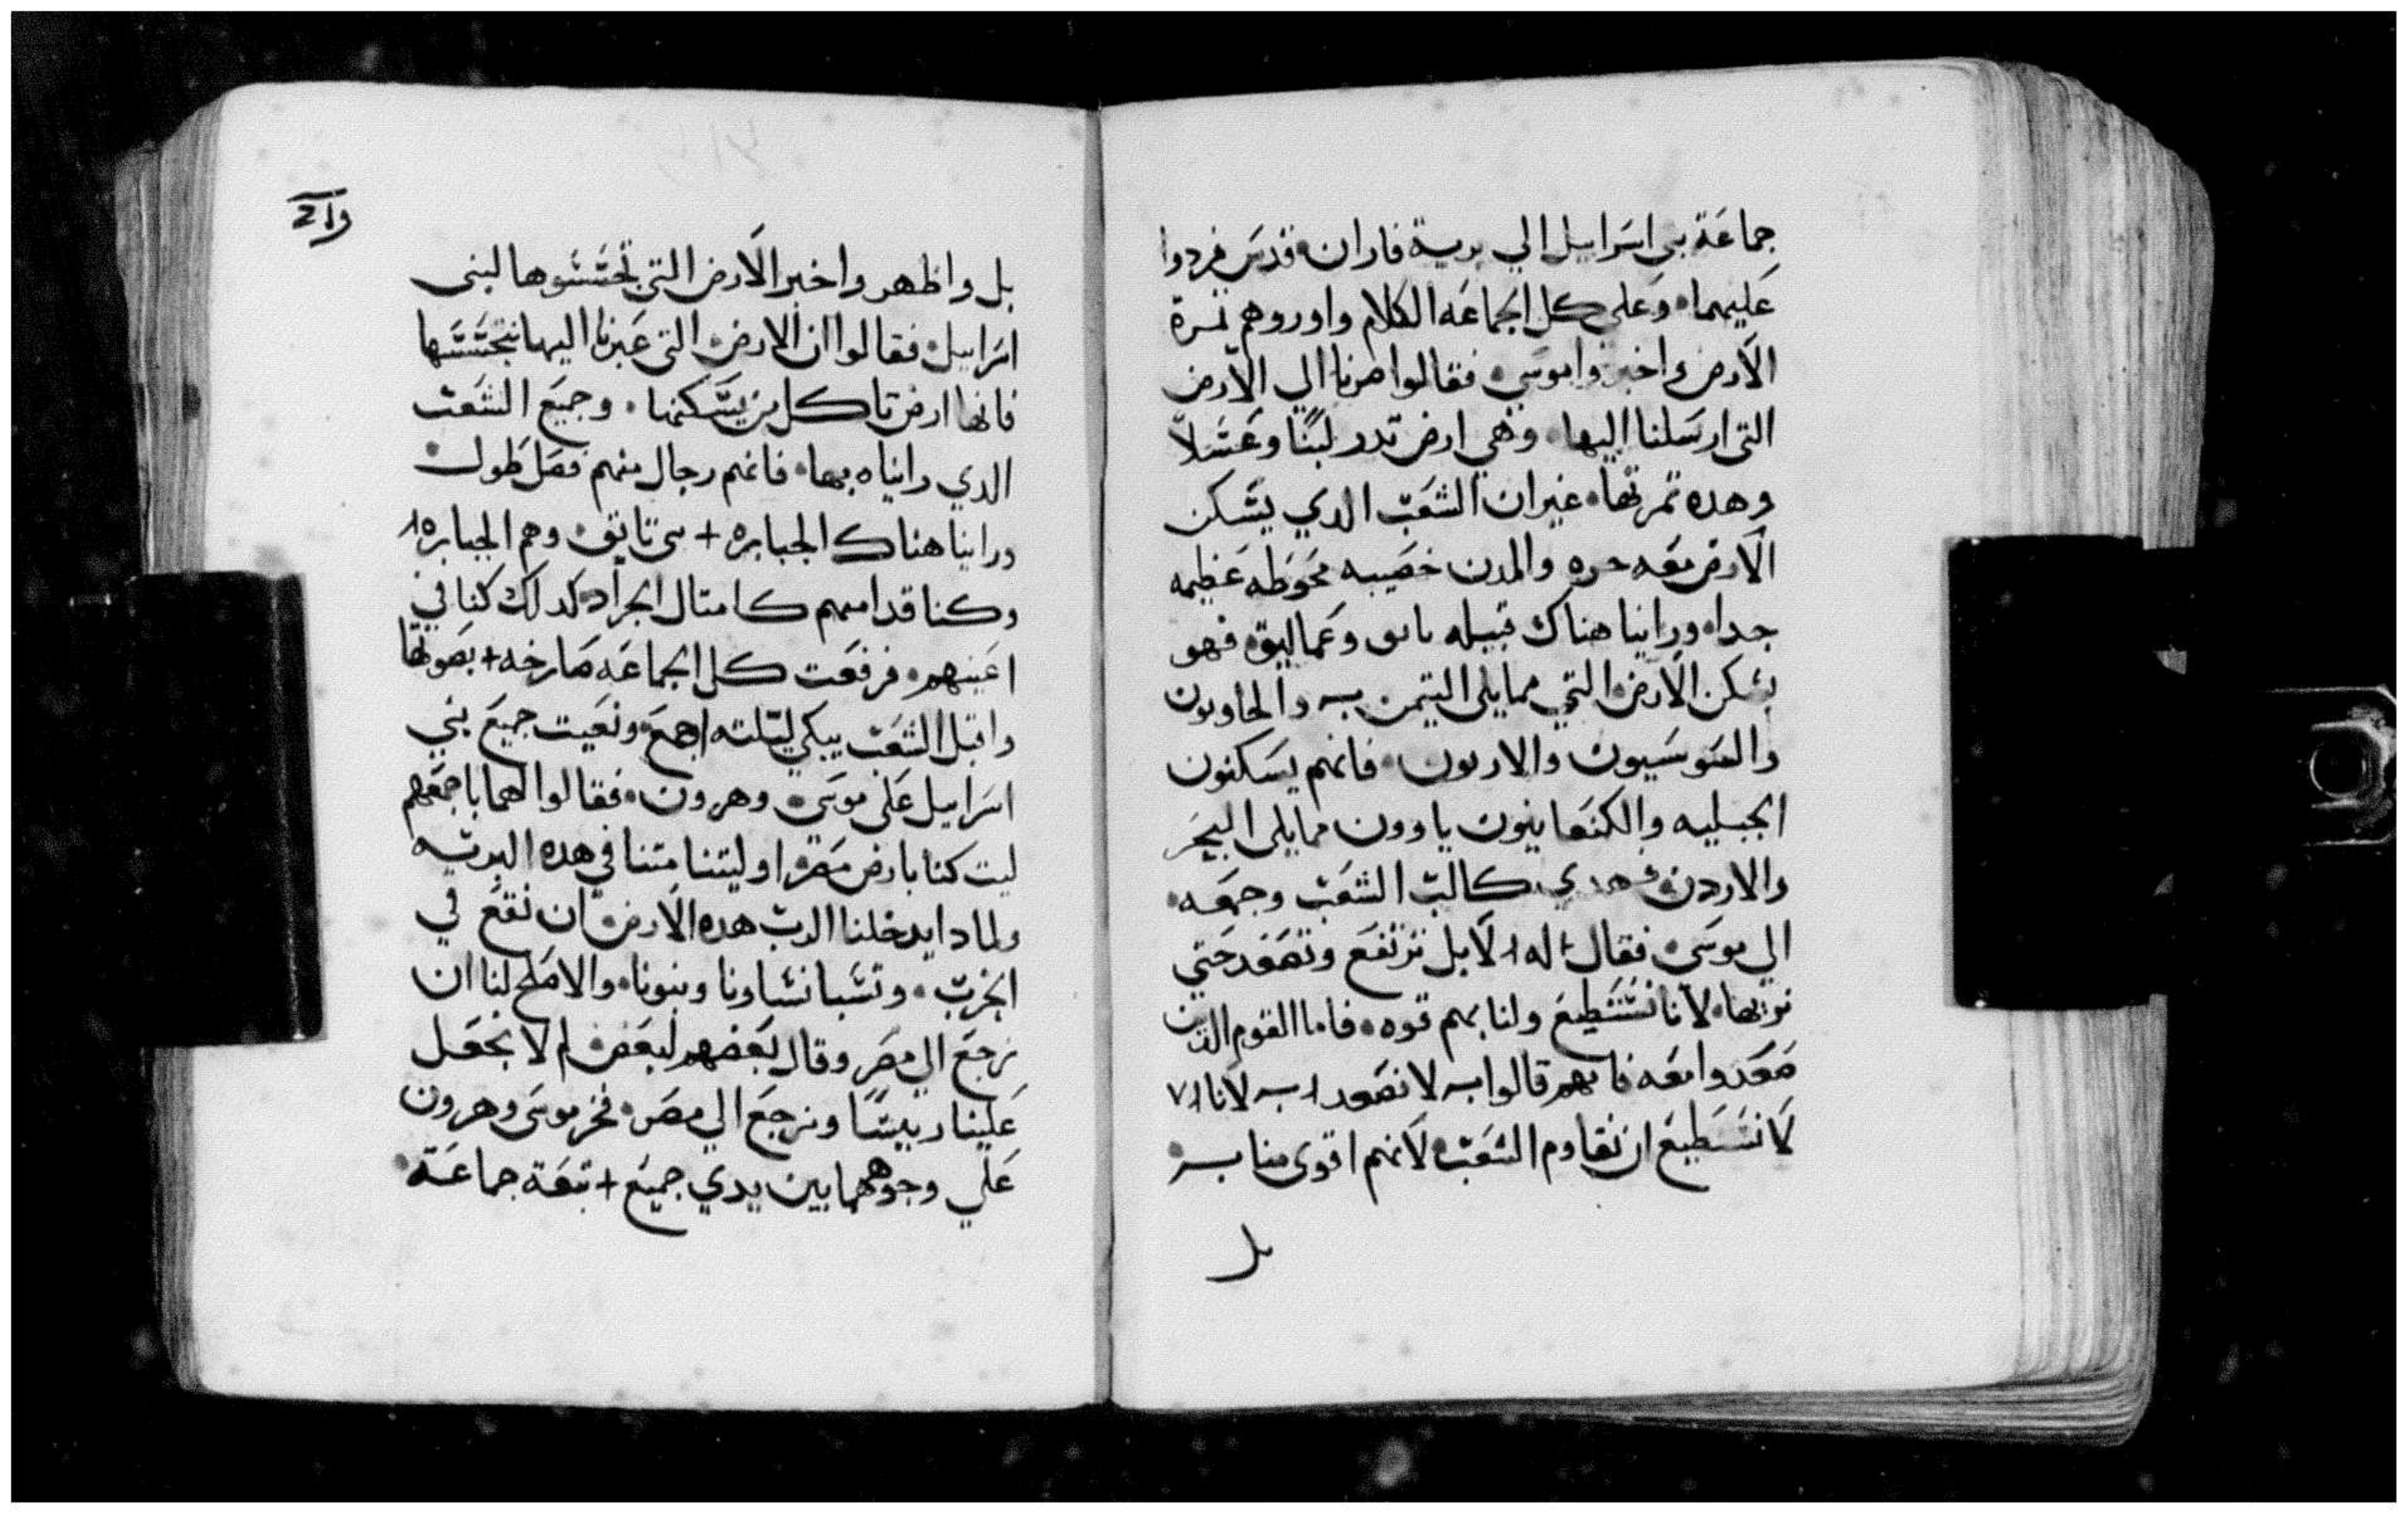 جماعة بني اسراييل الي برية فاران قدس فردوا
عليهما وعلي كل الجماعه الكلام واوروهم ثمرة
الارض واخبروا موسي فقالوا صرنا الي الارض
التي ارسلنا اليها وهي ارض تدر لبنًا وعسلاً
وهده ثمرتها غير ان الشعب الدي يسكن
الارض معه حره والمدن خصيبه محوطه عظيمه
جدا وراينا هناك قبيله ناىق وعماليق فهو
يسكن الارض التي مما يلي التيمن والحاويون
واليبوسيون والاربون فانهم يسكنون
الجبليه والكنعانيون ياوون مما يلي البحر
والاردن فهدي كالب الشعب وجمعه
الي موسي فقال له لا بل نرتفع ونصعد حتي
نرثها لانا نستطيع ولنا بهم قوه فاما القوم الدين
صعدوا معه فانهم قالوا لا نصعد لانا
لا نستطيع ان نقاوم الشعب لانهم اقوي منا
بل
بل واظهروا خبر الارض التي تجسسوها لبني
اسراييل فقالوا ان الارض التي عبرنا اليها نتجسسها
فانها ارض تاكل من يسكنها وجميع الشعب
الدي رايناه بها فانهم رجال منهم فصل طول
وراينا هناك الجبابره + بني تايق وهم الجبابره
وكنا قدامهم كامتال الجراد كدلك كنا في
اعينهم فرفعت كل الجماعه صارخه + بصوتها
واقبل الشعب يبكي ليلته اجمع ونعيت جميع بني
اسراييل علي موسي وهرون فقالوا لهما باجمعهم
ليت كنا بارض مصر او ليتنا متنا في هده البريه
ولمادا يدخلنا الرب هده الارض ان نقع في
الحرب وتسبا نساونا وبنونا والاصلح لنا ان
نرجع الي مصر وقال بعضهم لبعض لم لا نجعل
علينا رييسًا ونرجع الي مصر فخر موسي وهرون
علي وجوههما بين يدي جميع + تبعة جماعة